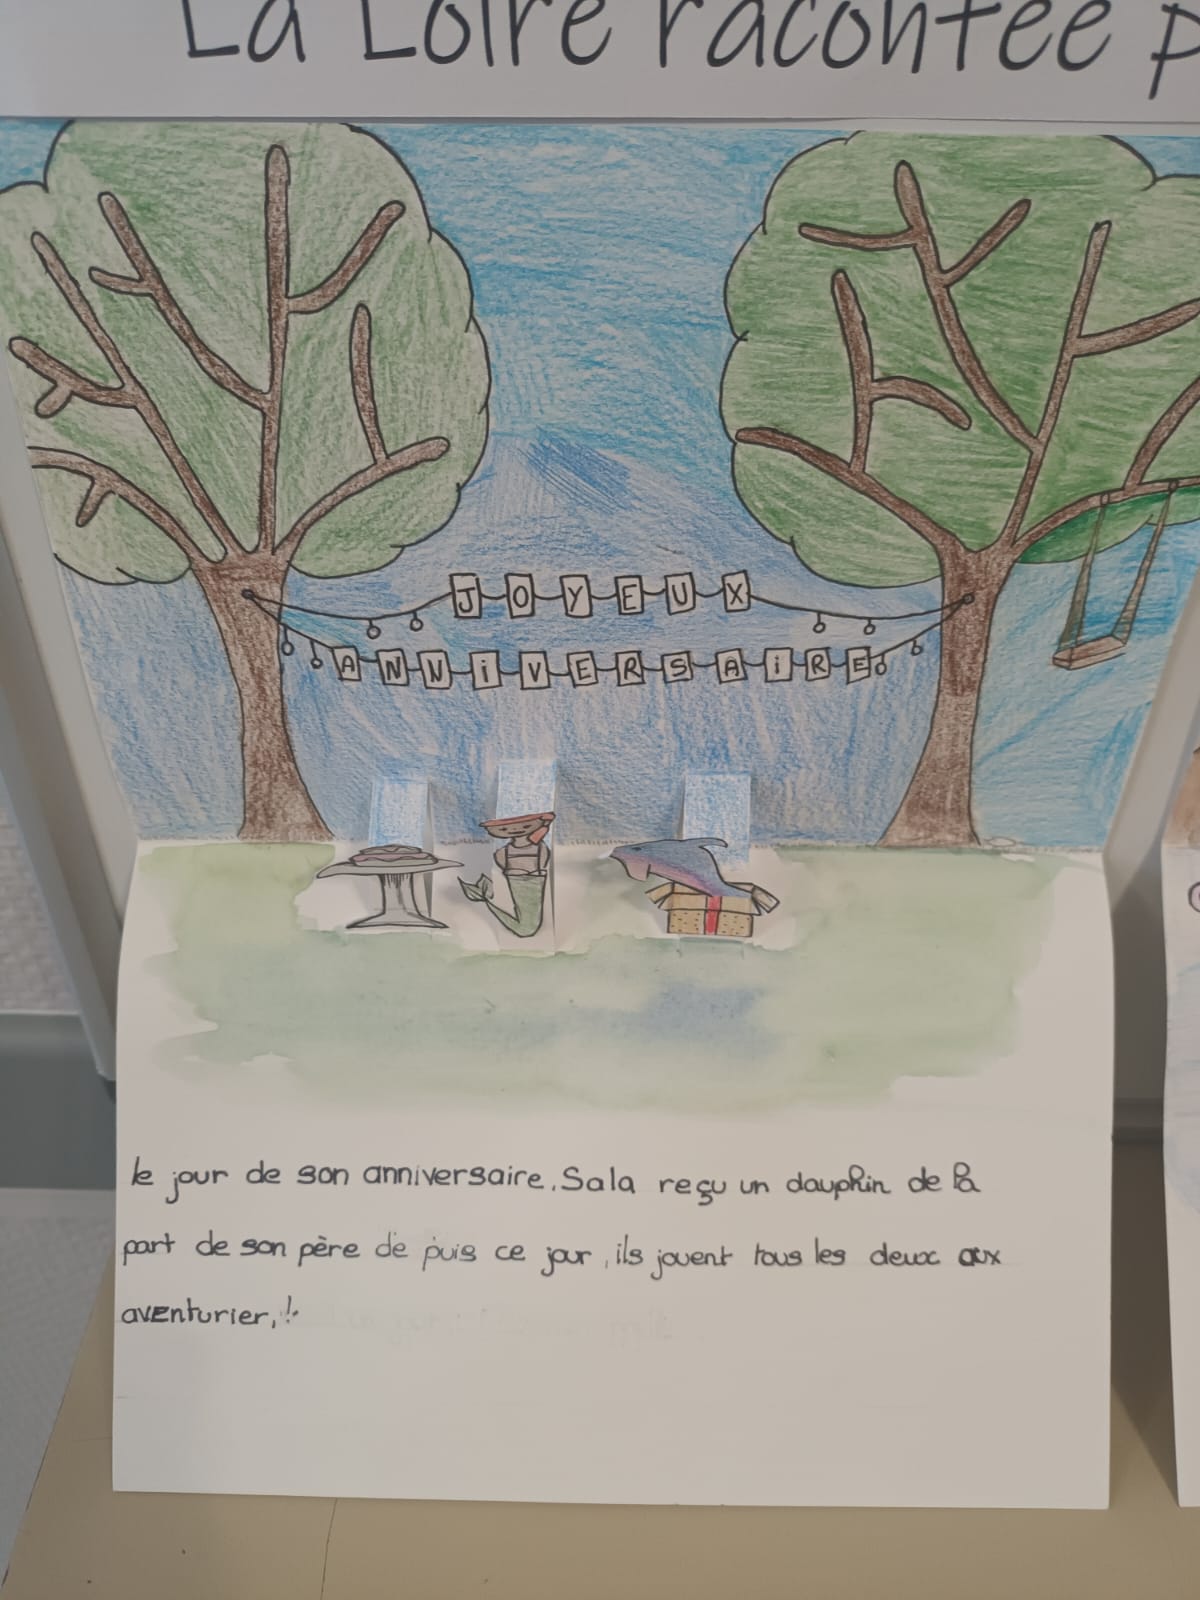 La Loire racontée p
JOYEUX
ANNiVERSAiRE
le jour de son anniversaire. Sala reçu un dauphin de la
part de son père de puis ce jour, ils jouent tous les deux aux
aventurier,!